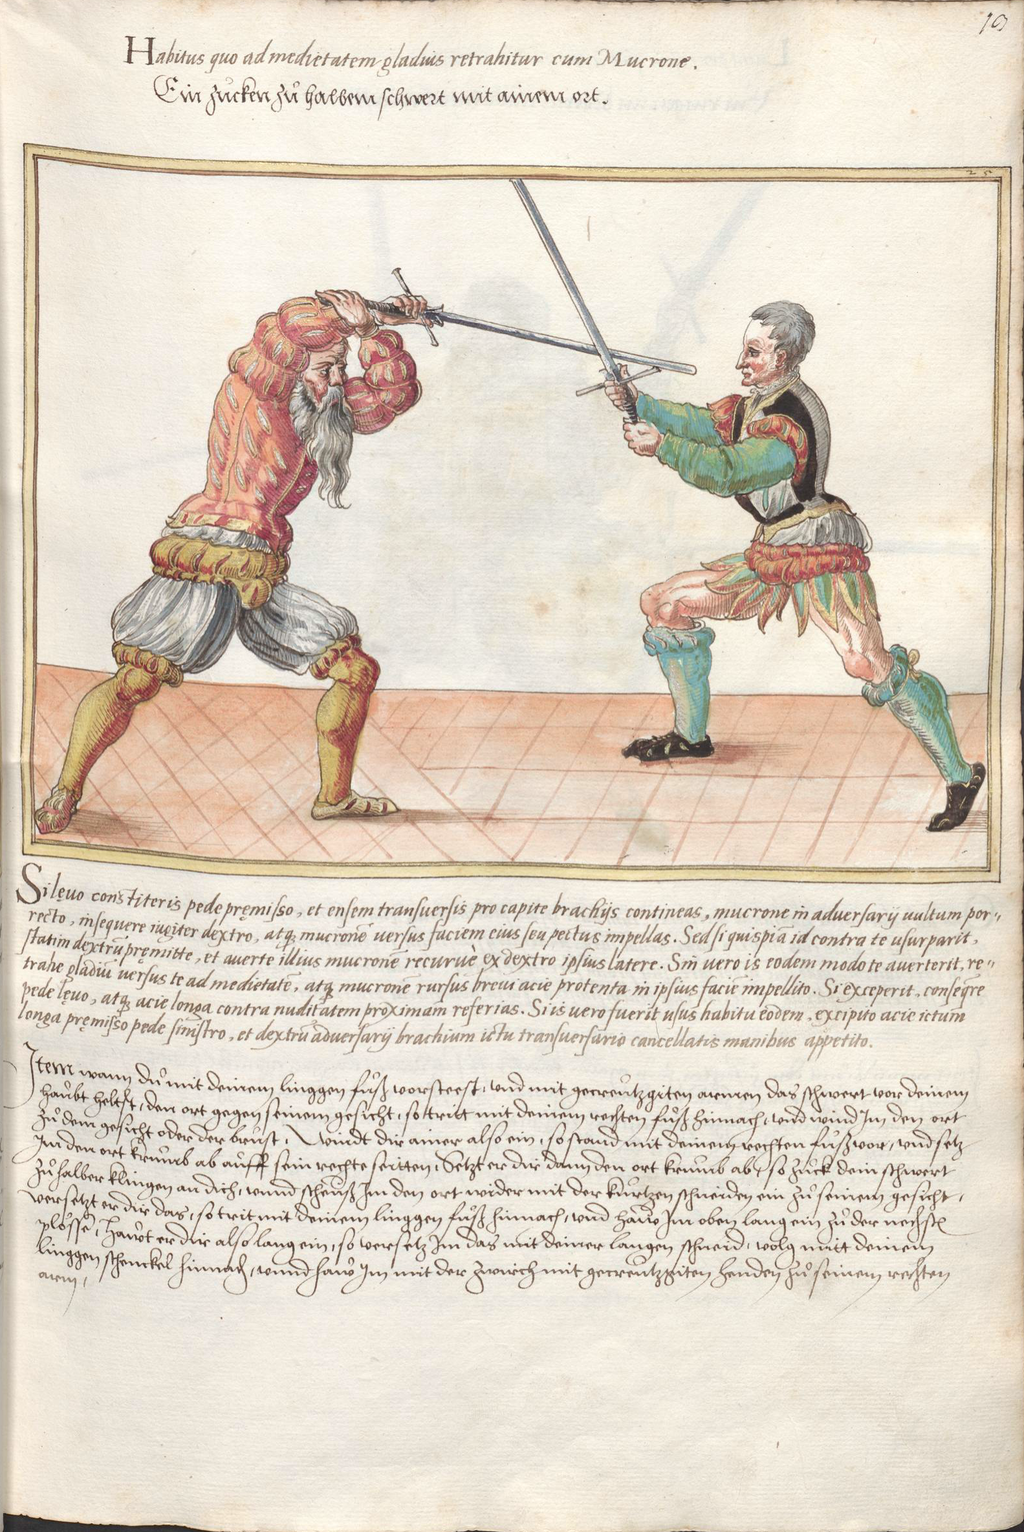 19
Habitus quo ad medietatem gladius retrahitur cum Mucrone.
Ein zucken zů halbem schwert mit ainem ort.
25
Si lęuo constiteris pede pręmisso, et ensem transuersis pro capite brachijs contineas, mucrone in adversarij uultum por-
recto, insequere iugiter dextro, atq; mucronē versus faciem eius seu pectus impellas. Sed si quispiā id contra te usurparit,
statim dextrū pręmitte, et auerte illius mucronē recuruè ex dextro ipsius latere. Sin vero is eodem modo te auerterit, re-
trahe gladiū versus te ad medietatē, atq; mucrone rursus breui acie protenta in ipsius faciē impellito. Si exceperit, conseqre
pede lęuo, atq; acie longa contra nuditatem proximam referias. Si is vero fuerit usus habitu eodem, excipito acie ictum
longa pręmisso pede sinistro, et dextrū adversarij brachium ictu transuersario cancellatis manibus appetito.
Item wann du mit deinem linggen fůß vorsteest, vnd mit gecreutzgiten armen das schwert vor deinem
haubt heltst, den ort gegen seinem gesicht, so tritt mit deinem rechten fůß hinnach, vnd wind Im den ort
zů dem gesicht oder der brust, Windt dir ainer also ein, so stand mit deinem rechten fůß vor, vnd setz
Im den ort krumb ab auff sein rechte seitten, Setzt er dir dann den ort krumb ab, so zuck dein schwert
zů halber klingen an dich, vnnd scheuß Im den ort wider mit der kurtzen schneiden ein zů seinem gesicht,
versetzt er dir das, so trit mit deinem linggen fůß hinnach, vnd haw Im oben lang ein zů der nechstē
plösse, Hawt er dir also lang ein, so versetz Im das mit deiner langen schneid, volg mitt deinem
linggen schenckel hinnach, vnnd haw Im mit der zwirch mit gecreutzgiten henden zů seinem rechten
arm,